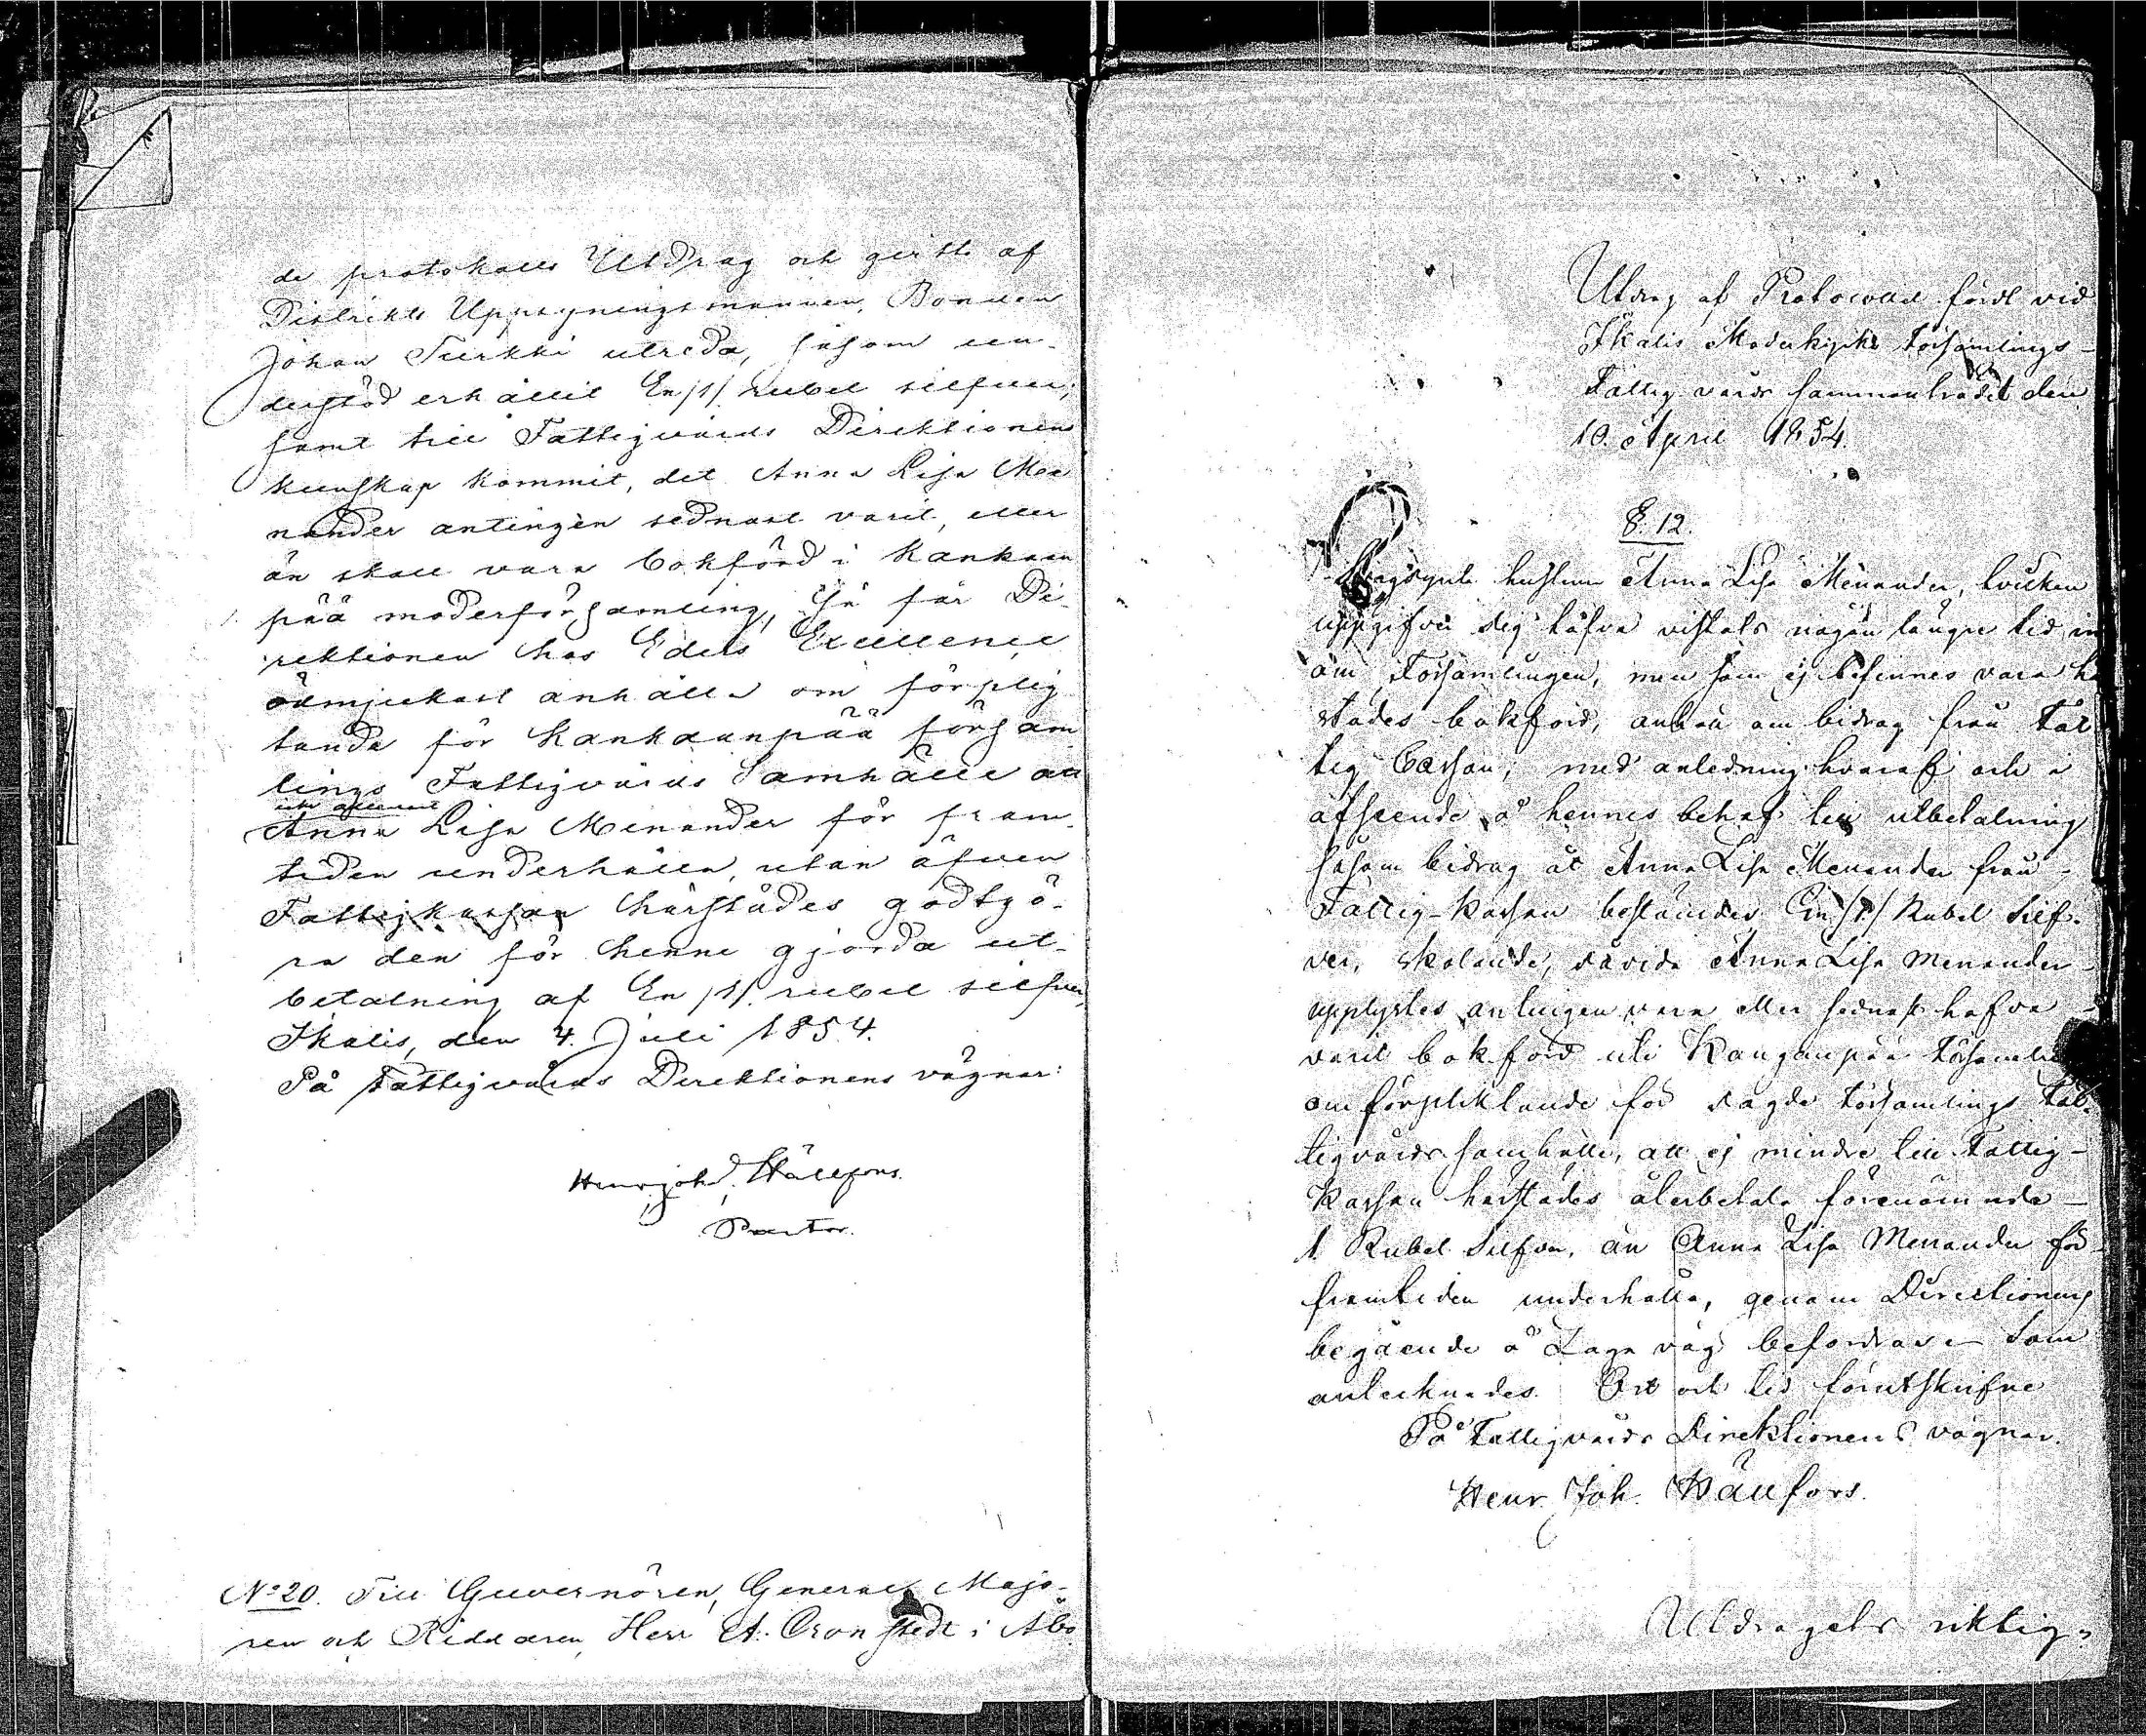 de protokolls Utdrag och genom af
Distrikts Uppsyningsmannen, Bonden
Johan Turkki utreda, såsom un-
derstöd erhållit En /1/ rubel silfver;
samt till Fattigvårds Direktionens
kunskap kommit, det Anna Lisa Me-
nander antingen sednast varit, eller
än skall vara bokförd i Kankaan
pää moderförsamling, Så får Di-
rektionen hos Eders Excellence
ödmjukast anhålla om förplig
tande för Kankaanpää försam
lings Fattigvårds Samhälle att
icke allenast
Anna Lisa Menander för fram-
tiden underhålla, utan äfven
Fattigkassan härstädes godtgö-
ra den för henne gjorda ut-
betalning af En /1/ rubel silfver,
Ikalis, den 4. Juli 1854.
På Fattigvårds Direktionens vägnar:
Henr. Joh. Hällfors.
Pastor.
No 20. Till Guvernören, General Majo-
ren och Riddaren, Herr A. Cronstedt i Åbo
Utdrag af Protocoll fördt vid
Ikalis Moderkyrko Församlings-
Fattigvårds sammanträdet den
10. April 1854.
§. 12.
hustrun Anna Lisa Menander, hvilken
uppgifver sig hafva vistats någon längre tid in
om Församlingen, men som ej befinnes vara hä
städes bokförd, anhöll om bidrag från Fat
tig Cassan; med anledning hvaraf och i
afseende å hennes behof till utbetalning
såsom bidrag åt Anna Lisa Menander från
Fattig-Kassan bestämdes En /1/ Rubel Silf-
ver, skolande, såvida Anna Lisa Menander
upplystes antingen vara eller sednast hafva
varit bokförd uti Kanganpää Församli
om förpliktande för sagde Församlings Fat-
tigvårds samhälle, att ej mindre till Fattig-
Kassan härstädes återbetala förenämnde
1 Rubel Silfver, än Anna Lisa Menander för
framtiden underhålla, genom Directionens
begående å Laga väg befordras – Som
antecknades. Ort och tid förutskrifne
På Fattigvårds Direktionens vägnar.
Henr. Joh. Hällfors.
Utdragets riktig-